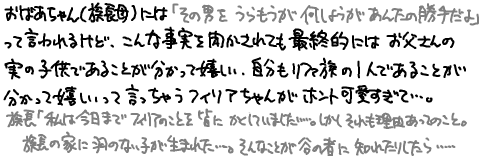 おばあちゃん(族長母)には「その男をうらもうが何しようがあんたの勝手だよ」
って言われるけど、こんな事実を聞かされても最終的にはお父さんの
実の子供であることが分かって嬉しい、自分もリファ族の1人であることが
分かって嬉しいって言っちゃうフィリアちゃんがホント可愛すぎて…。
族長「私は今日までフィリアのことを皆にかくしていました…。しかしそれも理由あってのこと。
族長の家に羽のない子が生まれた…。そんなことが谷の者に知れたりしたら……